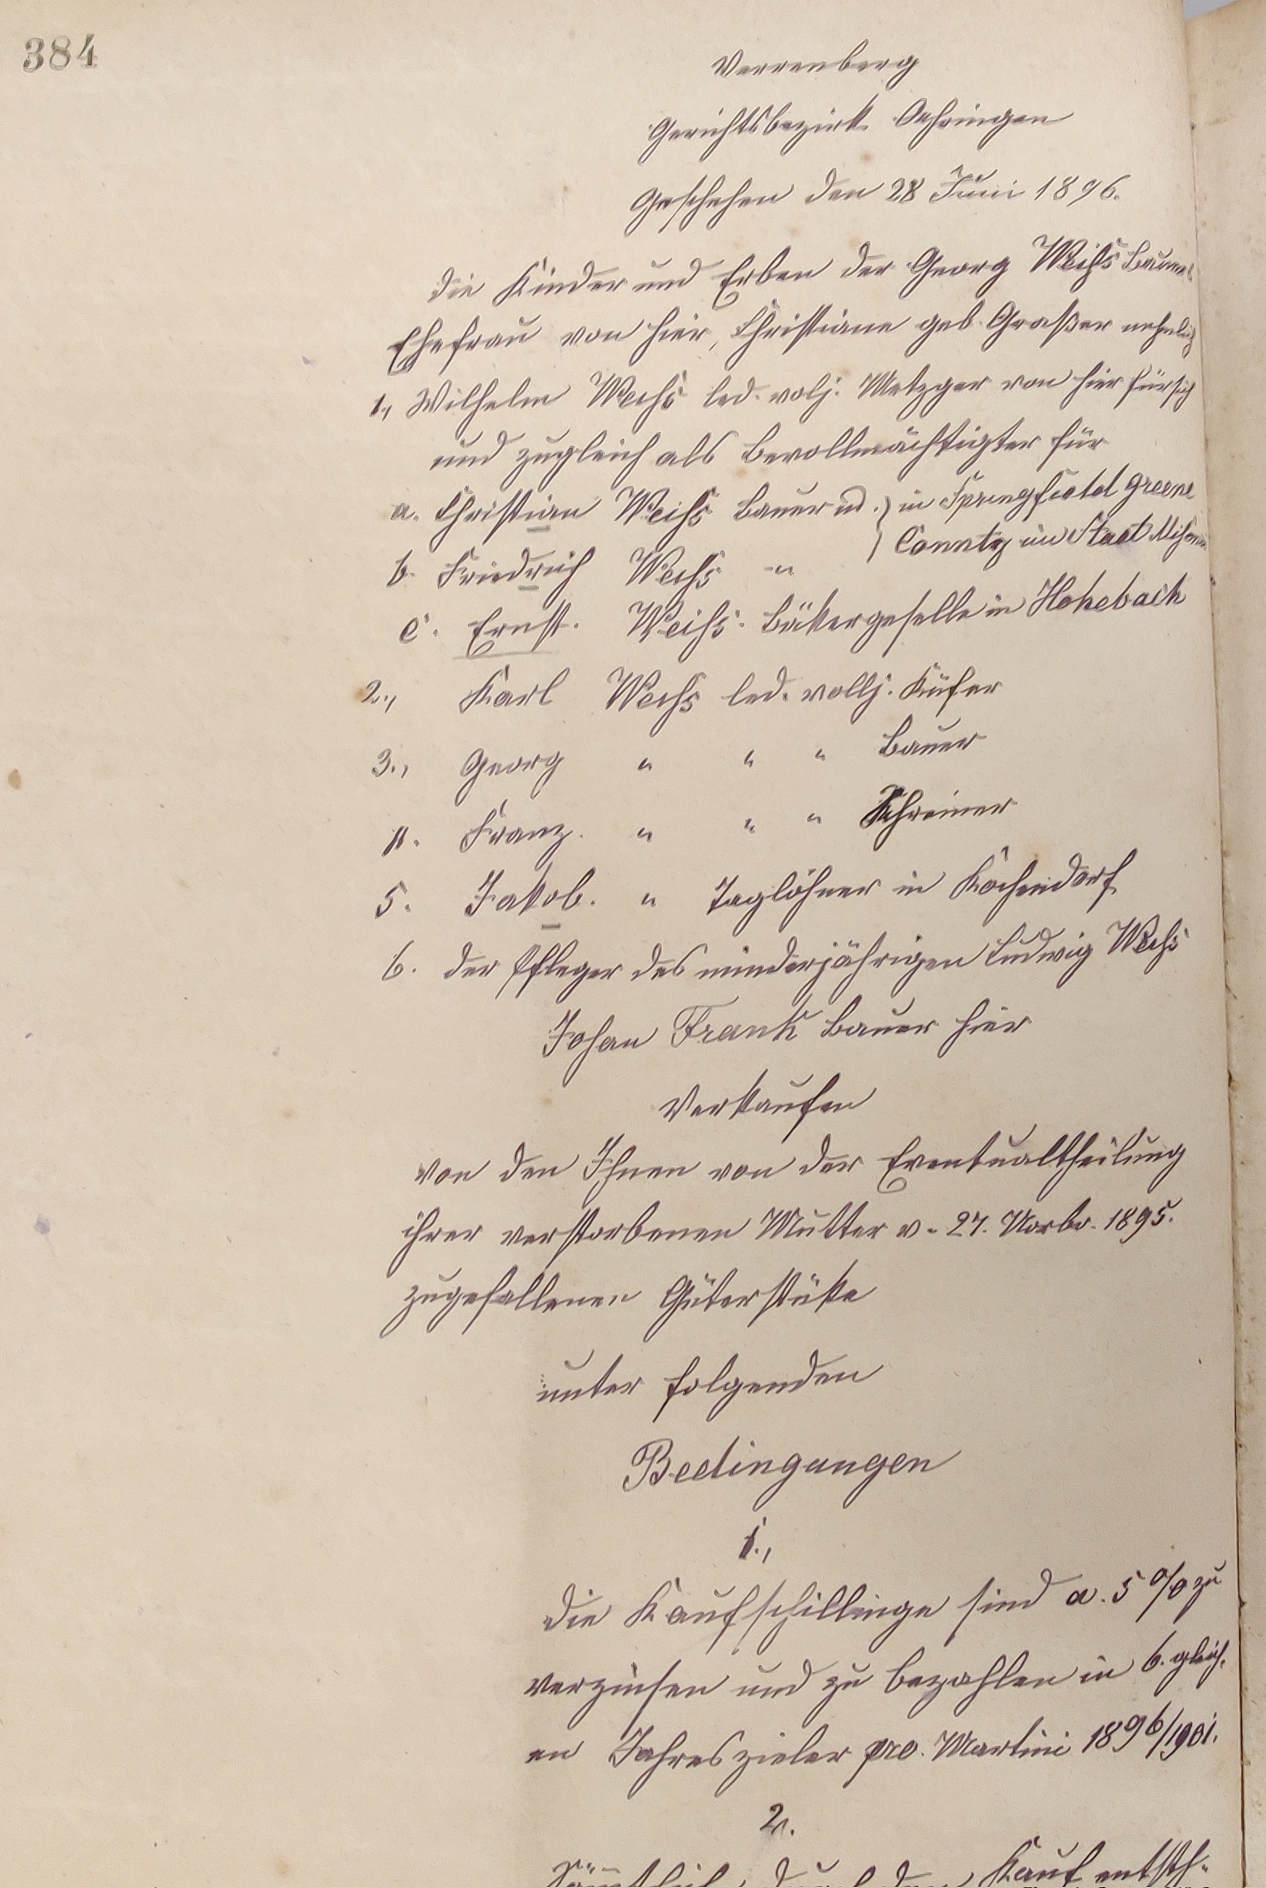 384
Verrenberg
Gerichtsbezirk Oehringen
Geschehen den 28 Juni 1896.
die Kinder und Erben der Georg Weihs Bauers
Ehefrau von hier, Christiane geb. Graßer nehmlich
1., Wilhelm Weihs led. volj. Metzger von hier für sich
und zugleich als Bevollmächtigter für
a. Christian Weihs Bauer u. } in Springfield Greene
b. Friedrich Weihs " County im Staat
c. Ernst. Weihs. Bäkergeselle in Hohebach
2., Karl Weihs led. vollj. Küfer
3., Georg " " " Bauer
4. Franz. " " " Schreiner
5. Jakob. " Taglöhner in Kochendorf
6. der Pfleger des minderjährigen Ludwig Weihs
Johan Frank Bauer hier
Verkaufen
von den Ihnen von der Eventualtheilung
ihrer verstorbenen Mutter v. 27. Novbr. 1895.
zugefallenen Güterstüke
unter folgenden
Bedingungen
1.,
die Kaufschillinge sind a. 5 % zu
verzinsen und zu bezahlen in 6. gleich.
en Jahreszieler pro. Martini 1896/1901.
2.
Kauf entsth.